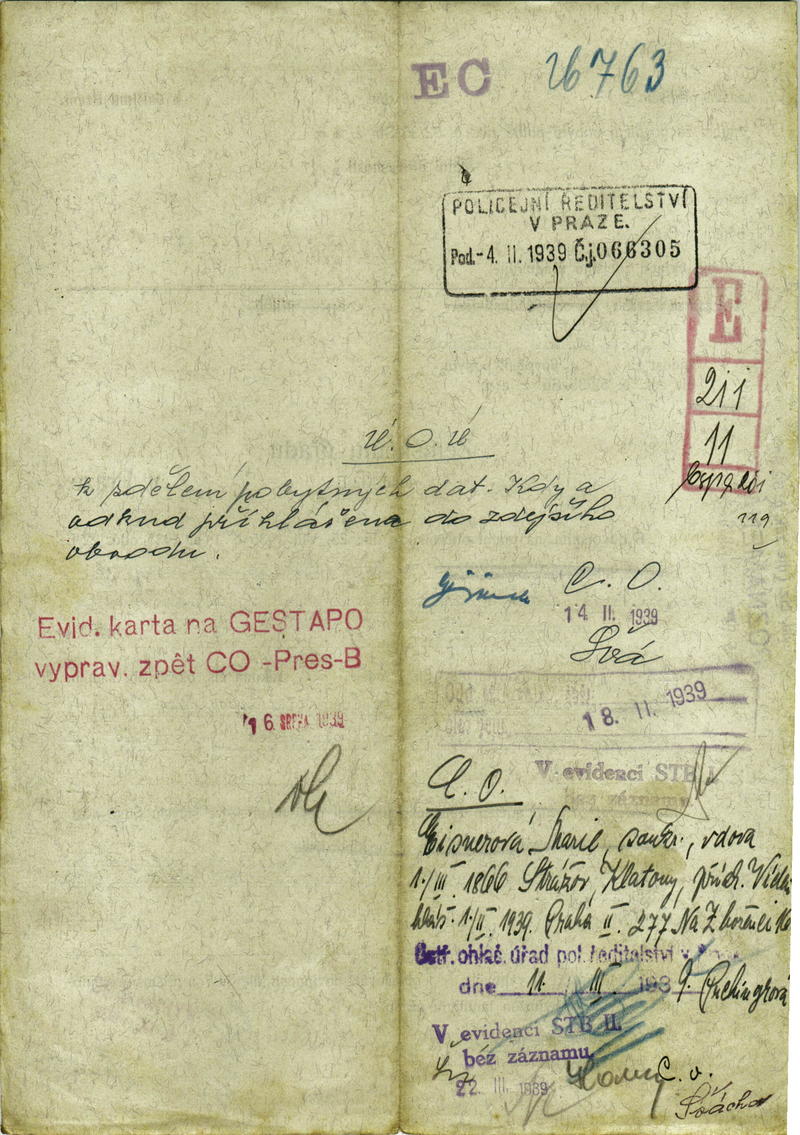 EC 26763
POLICEJNÍ ŘEDITELSTVÍ
V PRAZE.
Pod.-4. II. 1939 Č.j.066305
E
211
11
Ú. O. Ú
k sdělení pobytných dat. Kdy a
odkud přihlášena do zdejšího
obvodu.
C. O.
14 II. 1939
Evid. karta na GESTAPO
vyprav. zpět CO -Pres-B
16. SRPNA 1939
18. II. 1939
V evidenci STB I.
bez záznamu
C. O.
Eisnerová Marie, soukr., vdova
1./III. 1866 Strážov, Klatovy, přích. Vídeň
hláš. 1./II. 1939. Praha II. 277 Na Zbořenci 16
Ústř. ohlaš. úřad pol. ředitelství v Praze
dne 11. III. 1939.
V evidenci STB II.
bez záznamu.
22. III. 1939
C. o.